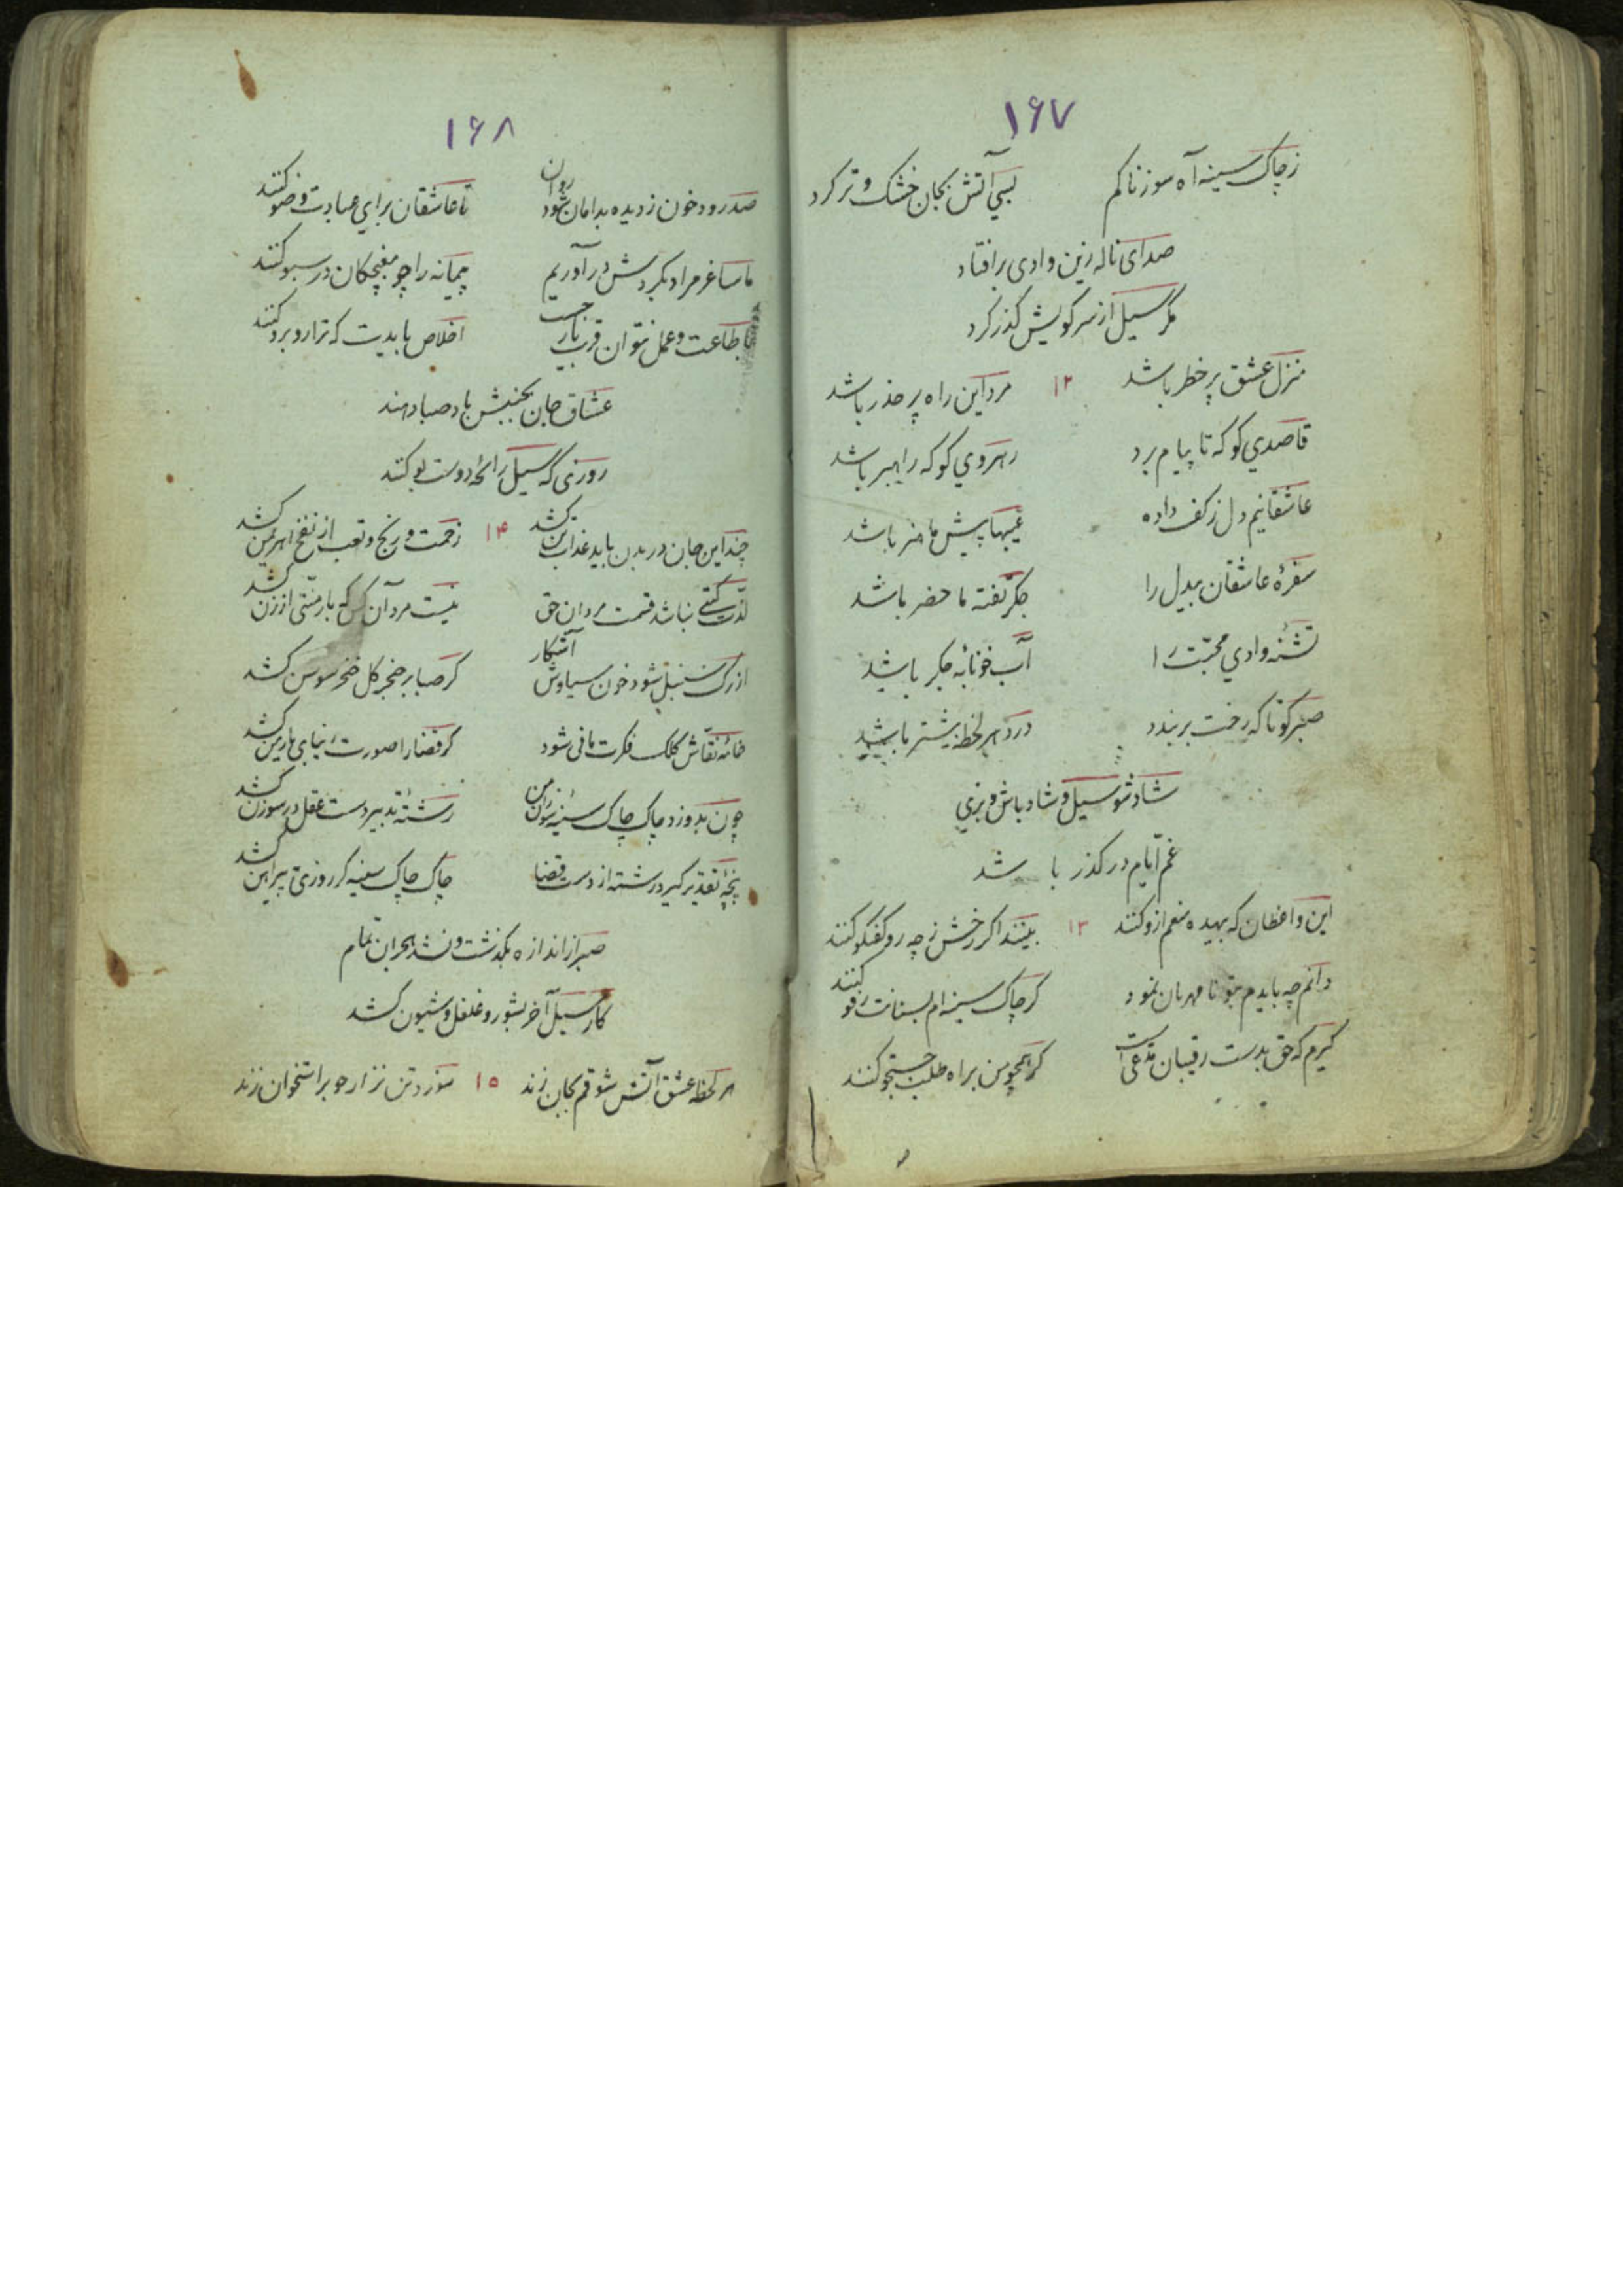 ۱۶۷
ز چاک سینه آه سوزناکم بسی آتش بجان خشک و تر کرد
صدای ناله زین وادی بر افتاد
مگر سیل از سر کویش گذر کرد
منزل عشق پر خطر باشد ۱۲ مرد این راه پر حذر باشد
قاصدی کو که تا پیام برد رهروی کو که راهبر باشد
عاشقانیم دل ز کف داده عیبها پیش ما هنر باشد
سفرهٔ عاشقان بیدل را جگر تفته ما حضر باشد
تشنهٔ وادی محبت را آب خونابهٔ جگر باشد
صبر کو تا که رخت بربندد درد هر لحظه بیشتر باشد
شاد شو سیل و شاد باش و بزی
غم ایام در گذر باشد
این واعظان که بیهده منعم ازو کنند ۱۳ بینند اگر رخش ز چه رو گفتگو کنند
دانم چه بایدم بتو نامهربان نمود گر چاک سینه ام بسنانت رفو کنند
گیرم که حق بدست رقیبان مدعی است گر همچو من براه طلب جستجو کنند
۱۶۸
صد رود خون ز دیده بدامان روان شود تا عاشقان برای عبادت وضو کنند
ما ساغر مراد بگردش در آوریم پیمانه را چو مغبچگان در سبو کنند
با طاعت و عمل نتوان قرب یار جست اخلاص باید یت که ترا روبرو کنند
عشاق جان بجنبش باد صبا دهند
روزی که سیل رائحهٔ دوست بو کنند
چند این جان در بدن باید عذاب تن کشد ۱۴ زحمت و رنج و تعب از نفخ اهریمن کشد
لذت گیتی نباشد قسمت مردان حق نیست مرد آن کس که بار منتی از زن کشد
از رگ سنبل شود خون سیاوش آشکار گر صبا بر خنجر گل خنجر سوسن کشد
خامهٔ نقاش کلک فکرت مانی شود گر قضا را صورت زیبای یار من کشد
چون بدوزد چاک چاک سینهٔ سوزان من رشتهٔ تدبیر دست عقل در سوزن کشد
پنجهٔ تقدیر گیرد رشته از دست قضا چاک چاک سینه گر روزی پیراهن کشد
صبر از اندازه بگذشت و نشد هجران تمام
کار سیل آخر بشور و غلغل و شیون کشد
هر لحظه عشق آتش شوقم بجان زند ۱۵ سوزد تن نزار چو بر استخوان زند